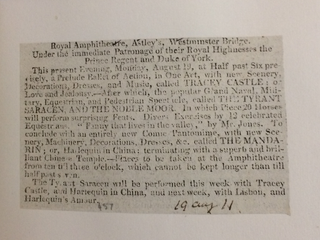 Royal Amphitheatre, Astley's, Westminster Bridge.
Under the immediate Patronage of their Royal Highnesses the
Prince Regent and Duke of York.
This present Evening, Monday, August 19, at Half past Six pre-
cisely, a Prelude Ballet of Action, in One Act, with new Scenery,
Decorations, Dresses, and Music, called TRACEY CASTLE; or
Love and Jealousy.—After which, the popular Grand Naval, Mili-
tary, Equestrian, and Pedestrian Spectacle, called THE TYRANT
SARACEN, AND THE NOBLE MOOR. In which Piece 20 Horses
will perform surprising Feats. Divers Exercises by 12 celebrated
Equestrians. "Funny that lives in the valley," by Mr. Jones. To
conclude with an entirely new Comic Pantomime, with new Sce-
nery, Machinery, Decorations, Dresses, &c. called THE MANDA-
RIN; or, Harlequin in China; terminating with a superb and bril-
liant Chinese Temple.—Places to be taken at the Amphitheatre
from ten till three o'clock, which cannot be kept longer than till
half past seven.
The Tyrant Saracen will be performed this week with Tracey
Castle, and Harlequin in China, and next week, with Lisbon, and
Harlequin's Amour.
19 aug 11